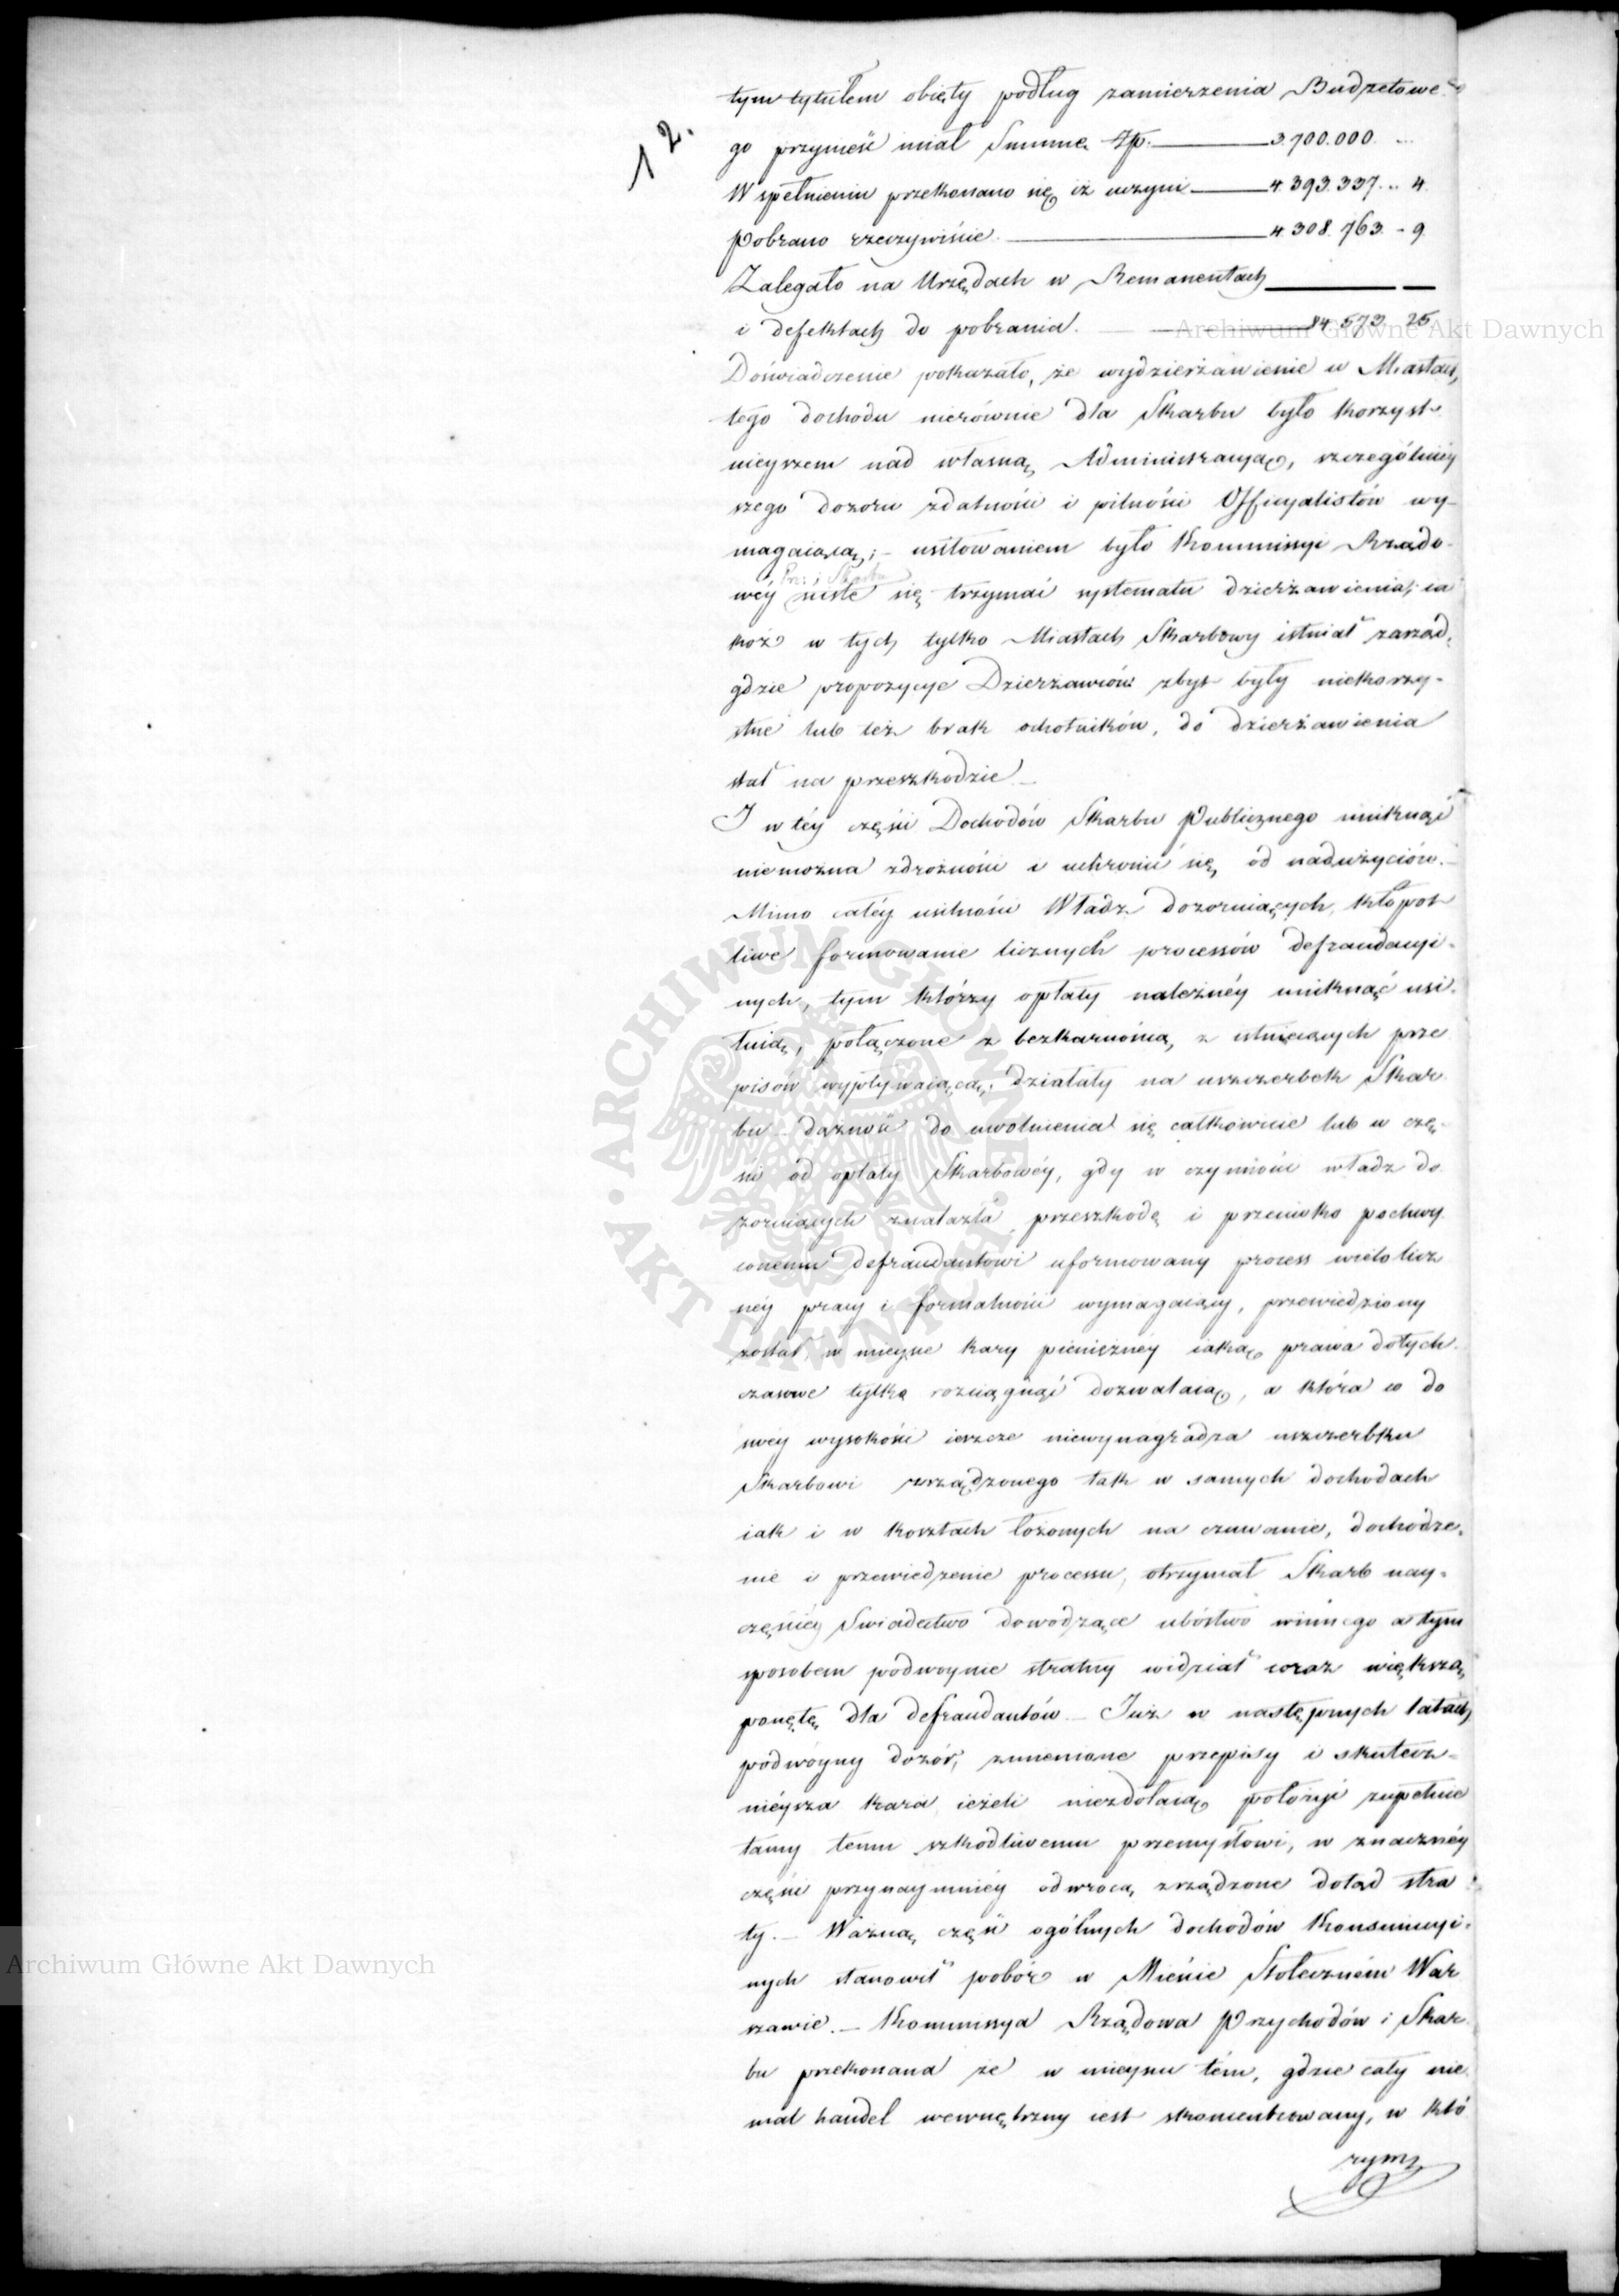 12.
tym tytułem obięty podług zamierzenia Budżetowe-
go przynieść miał Summę Zp. 3.700.000. ...
W spełnieniu przekonano się iż uczyni 4.393.337. .. 4.
Pobrano rzeczywiście. 4.308.763. - 9.
Zalegało na Urzędach w Remanentach
i defektach do pobrania. 84.573 25
Archiwum Główne Akt Dawnych
Doświadczenie pokazało, że wydzierżawienie w Miastach
tego dochodu nierównie dla Skarbu było korzyst-
nieyszem nad własną Administracyią, szczególniey
szego dozoru zdatności i pilności Officyalistów wy-
magaiącą; - usiłowaniem było Kommissyi Rządo-
Prz: i Skarbu
wéy ściśle się trzymać systematu dzierżawienia; ia
koż w tych tylko Miastach Skarbowy istniał zarząd,
gdzie propozycye Dzierżawców zbyt były niekorzy-
stne lub też brak ochotników, do dzierżawienia
stał na przeszkodzie
I w téy części Dochodów Skarbu Publicznego uniknąć
niemożna zdrożności i uchronić się od nadużyciów.
Mimo całéy usilności Władz dozoruiących, kłopot
liwe formowanie licznych processów defraudacyi-
nych, tym którzy opłaty należnéy uniknąć usi-
łuią, połączone z bezkarnością, z istnieiących prze
pisów wypływaiącą, działały na uszczerbek Skar
bu dążność do uwolnienia się całkowicie lub w czę-
ści od opłaty Skarbowéy, gdy w czynności władz do
zoruiących znalazła przeszkodę i przeciwko pochwy
conemu defraudantowi uformowany process wielolicz
néy pracy i formalności wymagaiący, przewiedziony
został, w mieysce kary pieniężnéy iaką prawa dotych
czasowe tylko rozciągnąć dozwalaią, a która w do
swey wysokości ieszcze niewynagradza uszczerbku
Skarbowi zrządzonego tak w samych dochodach
iak i w kosztach łożonych na czuwanie, dochodze-
nie i przewiedzenie processu, otrzymał Skarb nay-
częściéy Świadectwo dowodzące ubóstwo winnego a tym
sposobem podwoynie stratny widział coraz większą
ponętę dla defraudantów - Już w następnych latach
podwóyny dozór, zmienione przepisy i skutecz-
niéysza kara ieżeli niezdołaią położyć zupełnie
tamy temu szkodliwemu przemysłowi, w znacznéy
części przynaymniéy odwrócą zrządzone dotąd stra
ty. - Ważną część ogólnych dochodów Konsumcyi-
nych stanowił pobór w Mieście Stołeczném War
szawie. - Kommissya Rządowa Przychodów i Skar
bu przekonana że w mieyscu tém, gdzie cały nie
mal handel wewnętrzny iest skoncentrowany, w któ
rym
Archiwum Główne Akt Dawnych
ARCHIWUM GŁÓWNE AKT DAWNYCH